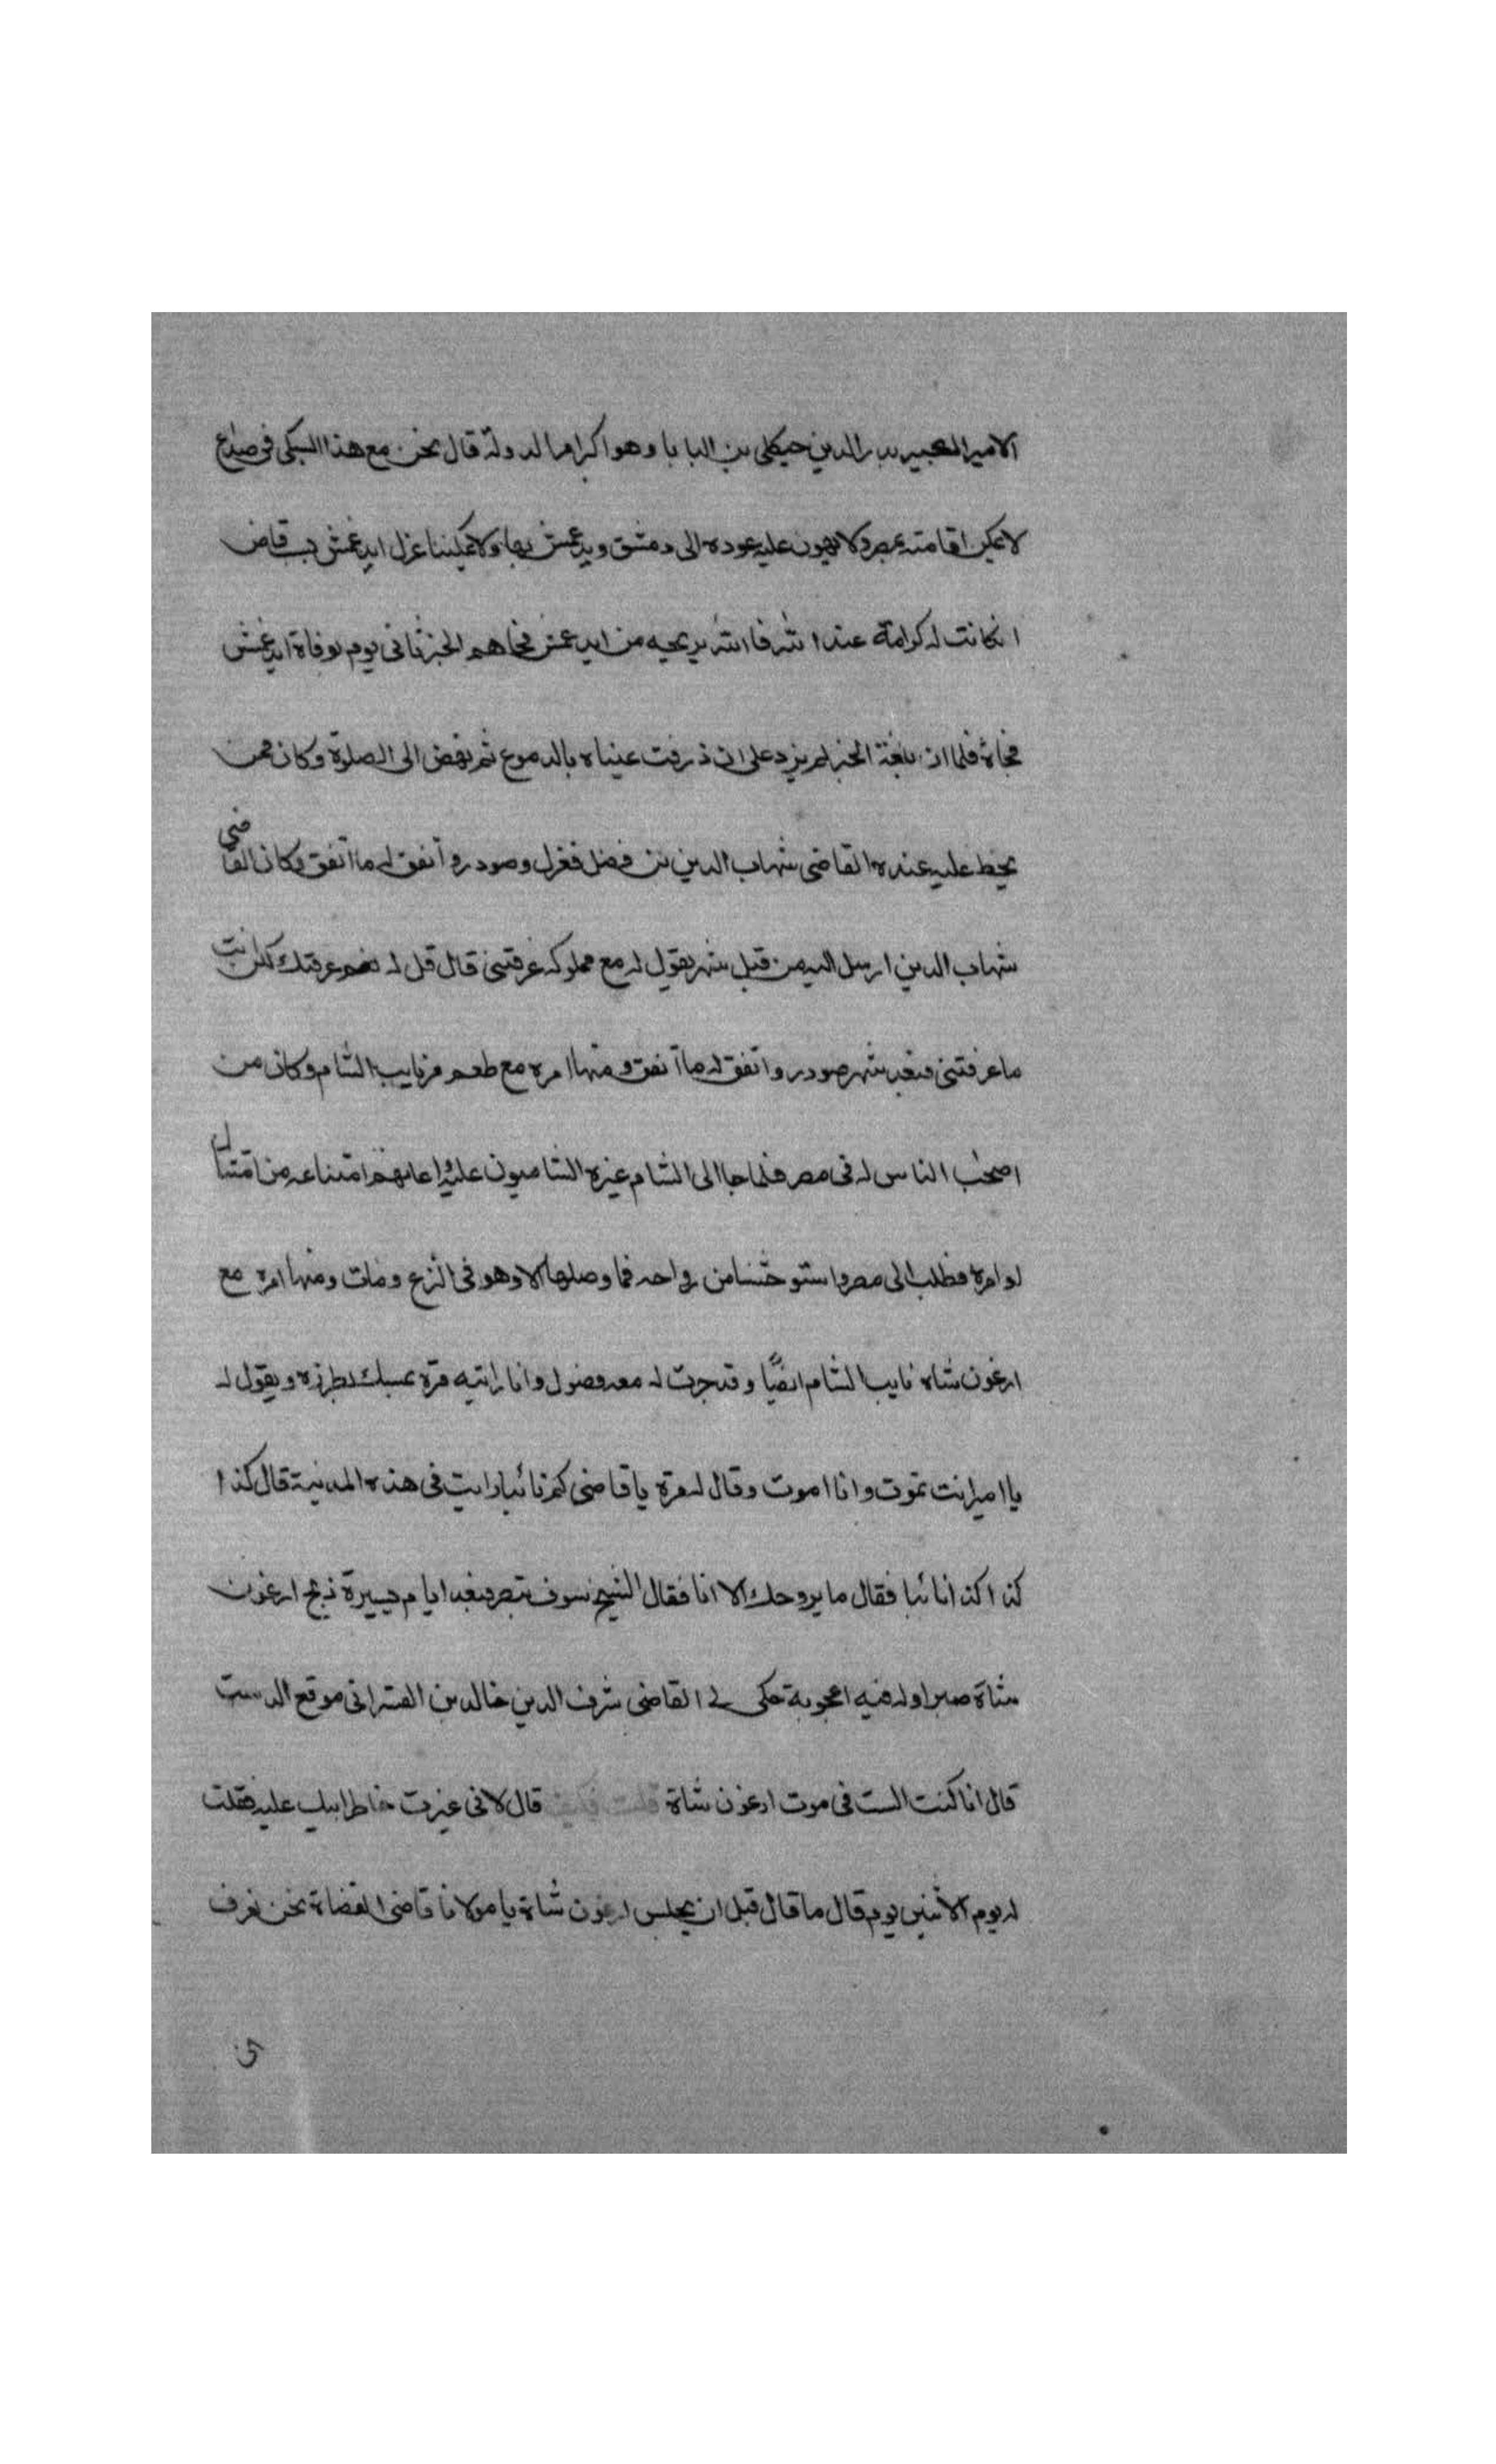 الامير الكبير بدر الدين جنكلى بن البابا وهو اكبر امرا الدولة قال نحن مع هذا السبكى فى صداع
لا يمكن اقامته بمصر ولا يهون عليه عوده الى دمشق وايدغمش بها ولا يمكننا عزل ايدغمش بسبب قاض
ان كانت له كرامة عند الله فالله يريحه من ايدغمش فجاهم الخبر ثانى يوم بوفاة ايدغمش
فجاة فلما ان بلغة الخبر لم يزد على ان ذرفت عيناه بالدموع ثم نهض الى الصلوة وكان ممن
يحط عليه عنده القاضى شهاب الدين بن فضل فعزل وصودر واتفق له ما اتفق وكان القاضى
شهاب الدين ارسل اليه من قبل شهر يقول له مع مملوكه عرفتنى قال قل له نعم عرفتك لكن انت
ما عرفتنى فبعد شهر صودر واتفق له ما اتفق ومنها امره مع طعمر نايب الشام وكان من
اصحب الناس له فى مصر فلما جا الى الشام غيره الشاميون عليه واعانهم امتناعه من امتثال
اوامره فطلب الى مصر واستوحشنا من رواحه فما وصلها الا وهو فى النزع ومات ومنها امره مع
ارغون شاه نايب الشام ايضًا وقد جرت له معه فصول وانا رايته مرة يمسك بطرزه ويقول له
يا امير انت تموت وانا اموت وقال له مرة يا قاضى كم نائبا رايت فى هذه المدينة قال كذا
كذا كذا نائبا فقال ما يروحك الا انا فقال الشيخ سوف تبصر فبعد ايام يسيرة ذبح ارغون
شاة صبرا وله فيه اعجوبة حكى لى القاضى شرف الدين خالد بن القيسرانى موقع الدست
قال انا كنت السبب فى موت ارغون شاة قلت فكيف قال لانى غيرت خاطر ابيك عليه فقلت
له يوم الاثنين يوم قال ما قال قبل ان يجلس ارغون شاة يا مولانا قاضى القضاة نحن نعرف